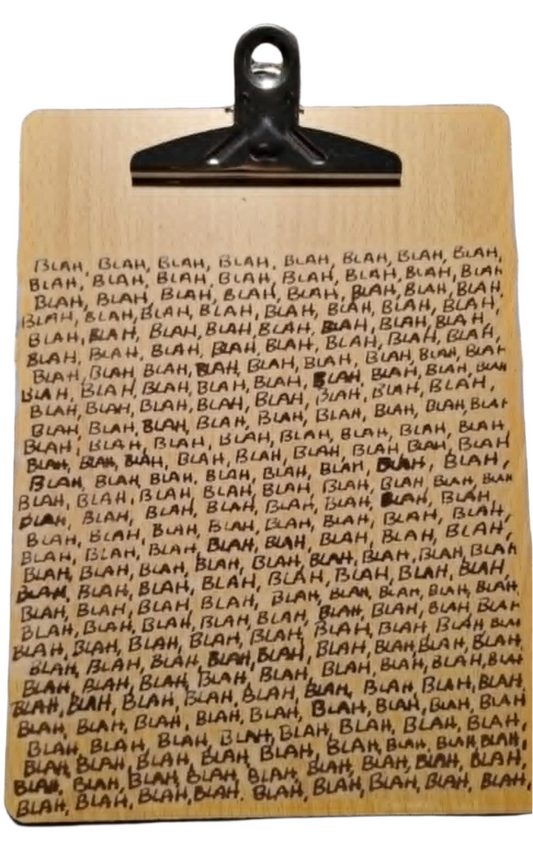 BLAH, BLAH, BLAH, BLAH, BLAH, BLAH, BLAH, BLAH,
BLAH, BLAH, BLAH, BLAH, BLAH, BLAH, BLAH, BLAH
BLAH, BLAH, BLAH, BLAH, BLAH, BLAH, BLAH, BLAH
BLAH, BLAH, BLAH, BLAH, BLAH, BLAH, BLAH, BLAH,
BLAH, BLAH, BLAH, BLAH, BLAH, BLAH, BLAH, BLAH,
BLAH, BLAH, BLAH, BLAH, BLAH, BLAH, BLAH, BLAH,
BLAH, BLAH, BLAH, BLAH, BLAH, BLAH, BLAH, BLAH, BLAH
BLAH, BLAH, BLAH, BLAH, BLAH, BLAH, BLAH, BLAH, BLAH
BLAH, BLAH, BLAH, BLAH, BLAH, BLAH, BLAH, BLAH,
BLAH, BLAH, BLAH, BLAH, BLAH, BLAH, BLAH, BLAH, BLAH
BLAH, BLAH, BLAH, BLAH, BLAH, BLAH, BLAH, BLAH
BLAH, BLAH, BLAH, BLAH, BLAH, BLAH, BLAH, BLAH, BLAH
BLAH, BLAH, BLAH, BLAH, BLAH, BLAH, BLAH, BLAH,
BLAH, BLAH, BLAH, BLAH, BLAH, BLAH, BLAH, BLAH, BLAH
BLAH, BLAH, BLAH, BLAH, BLAH, BLAH, BLAH, BLAH,
BLAH, BLAH, BLAH, BLAH, BLAH, BLAH, BLAH, BLAH,
BLAH, BLAH, BLAH, BLAH, BLAH, BLAH, BLAH, BLAH,
BLAH, BLAH, BLAH, BLAH, BLAH, BLAH, BLAH, BLAH, BLAH
BLAH, BLAH, BLAH, BLAH, BLAH, BLAH, BLAH, BLAH,
BLAH, BLAH, BLAH, BLAH, BLAH, BLAH, BLAH, BLAH, BLAH
BLAH, BLAH, BLAH, BLAH, BLAH, BLAH, BLAH, BLAH, BLAH
BLAH, BLAH, BLAH, BLAH, BLAH, BLAH, BLAH, BLAH, BLAH
BLAH, BLAH, BLAH, BLAH, BLAH, BLAH, BLAH, BLAH, BLAH
BLAH, BLAH, BLAH, BLAH, BLAH, BLAH, BLAH, BLAH, BLAH
BLAH, BLAH, BLAH, BLAH, BLAH, BLAH, BLAH, BLAH, BLAH
BLAH, BLAH, BLAH, BLAH, BLAH, BLAH, BLAH, BLAH, BLAH
BLAH, BLAH, BLAH, BLAH, BLAH, BLAH, BLAH, BLAH,
BLAH, BLAH, BLAH, BLAH, BLAH, BLAH, BLAH, BLAH, BLAH,
BLAH, BLAH, BLAH, BLAH, BLAH, BLAH, BLAH, BLAH, BLAH,
BLAH, BLAH, BLAH, BLAH, BLAH, BLAH, BLAH, BLAH, BLAH,